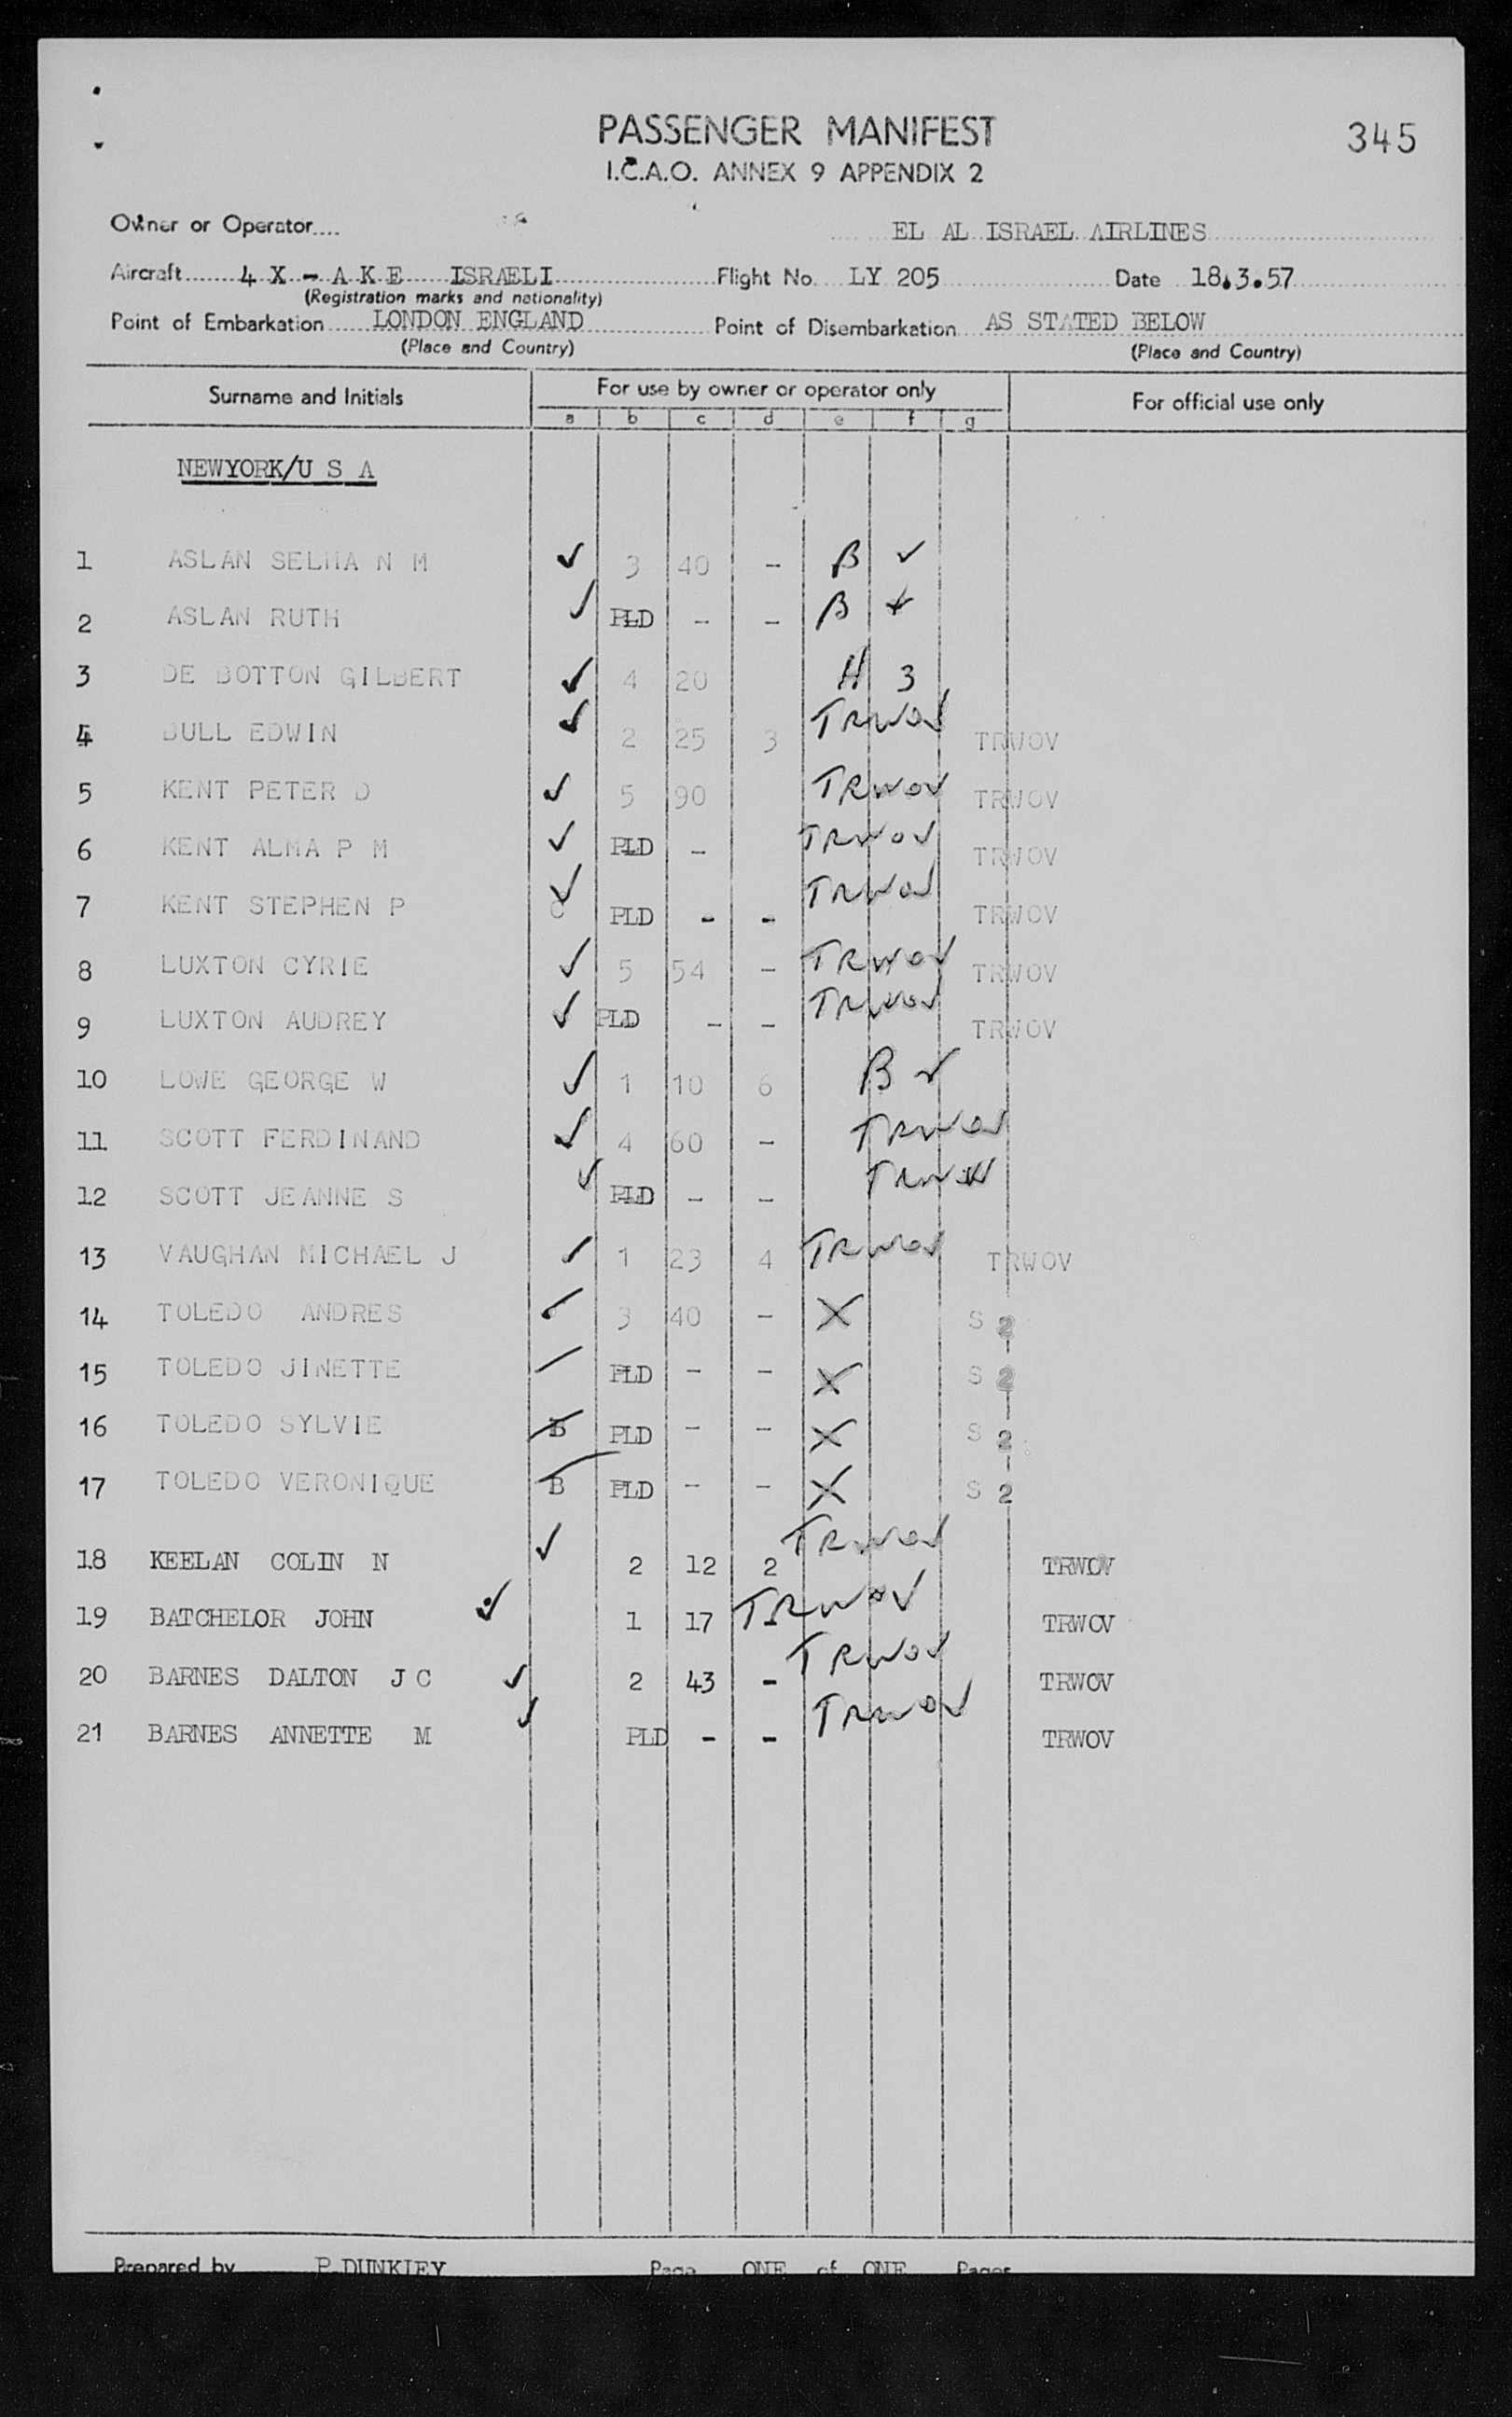 PASSENGER MANIFEST
345
I.C.A.O. ANNEX 9 APPENDIX 2
Owner or Operator.... EL AL ISRAEL AIRLINES
Aircraft 4 X - A K E ISRAELI Flight No. LY 205 Date 18.3.57
(Registration marks and nationality)
Point of Embarkation LONDON ENGLAND Point of Disembarkation AS STATED BELOW
(Place and Country) (Place and Country)
Surname and Initials For use by owner or operator only For official use only
a b c d e f g
NEWYORK/U S A
1 ASLAN SELMA N M ✓ 3 40 - B ✓
2 ASLAN RUTH ✓ PLD - - B
3 DE BOTTON GILBERT ✓ 4 20 H 3
4 BULL EDWIN ✓ 2 25 3 TRWOV TRWOV
5 KENT PETER D ✓ 5 90 TRWOV TRWOV
6 KENT ALMA P M ✓ PLD - TRWOV TRWOV
7 KENT STEPHEN P ✓ C PLD - - TRWOV TRWOV
8 LUXTON CYRIE ✓ 5 54 - TRWOV TRWOV
9 LUXTON AUDREY ✓ PLD - - TRWOV TRWOV
10 LOWE GEORGE W ✓ 1 10 6 B ✓
11 SCOTT FERDINAND ✓ 4 60 - TRWOV
12 SCOTT JEANNE S ✓ PLD - - TRWOV
13 VAUGHAN MICHAEL J ✓ 1 23 4 TRWOV TRWOV
14 TOLEDO ANDRES ✓ 3 40 - X S 2
15 TOLEDO JINETTE PLD - - X S 2
16 TOLEDO SYLVIE B PLD - - X S 2
17 TOLEDO VERONIQUE B PLD - - X S 2
18 KEELAN COLIN N ✓ 2 12 2 TRWOV TRWOV
19 BATCHELOR JOHN ✓ 1 17 TRWOV TRWOV
20 BARNES DALTON J C ✓ 2 43 - TRWOV TRWOV
21 BARNES ANNETTE M ✓ PLD - - TRWOV TRWOV
Prepared by P.DUNKLEY Page ONE of ONE Pages